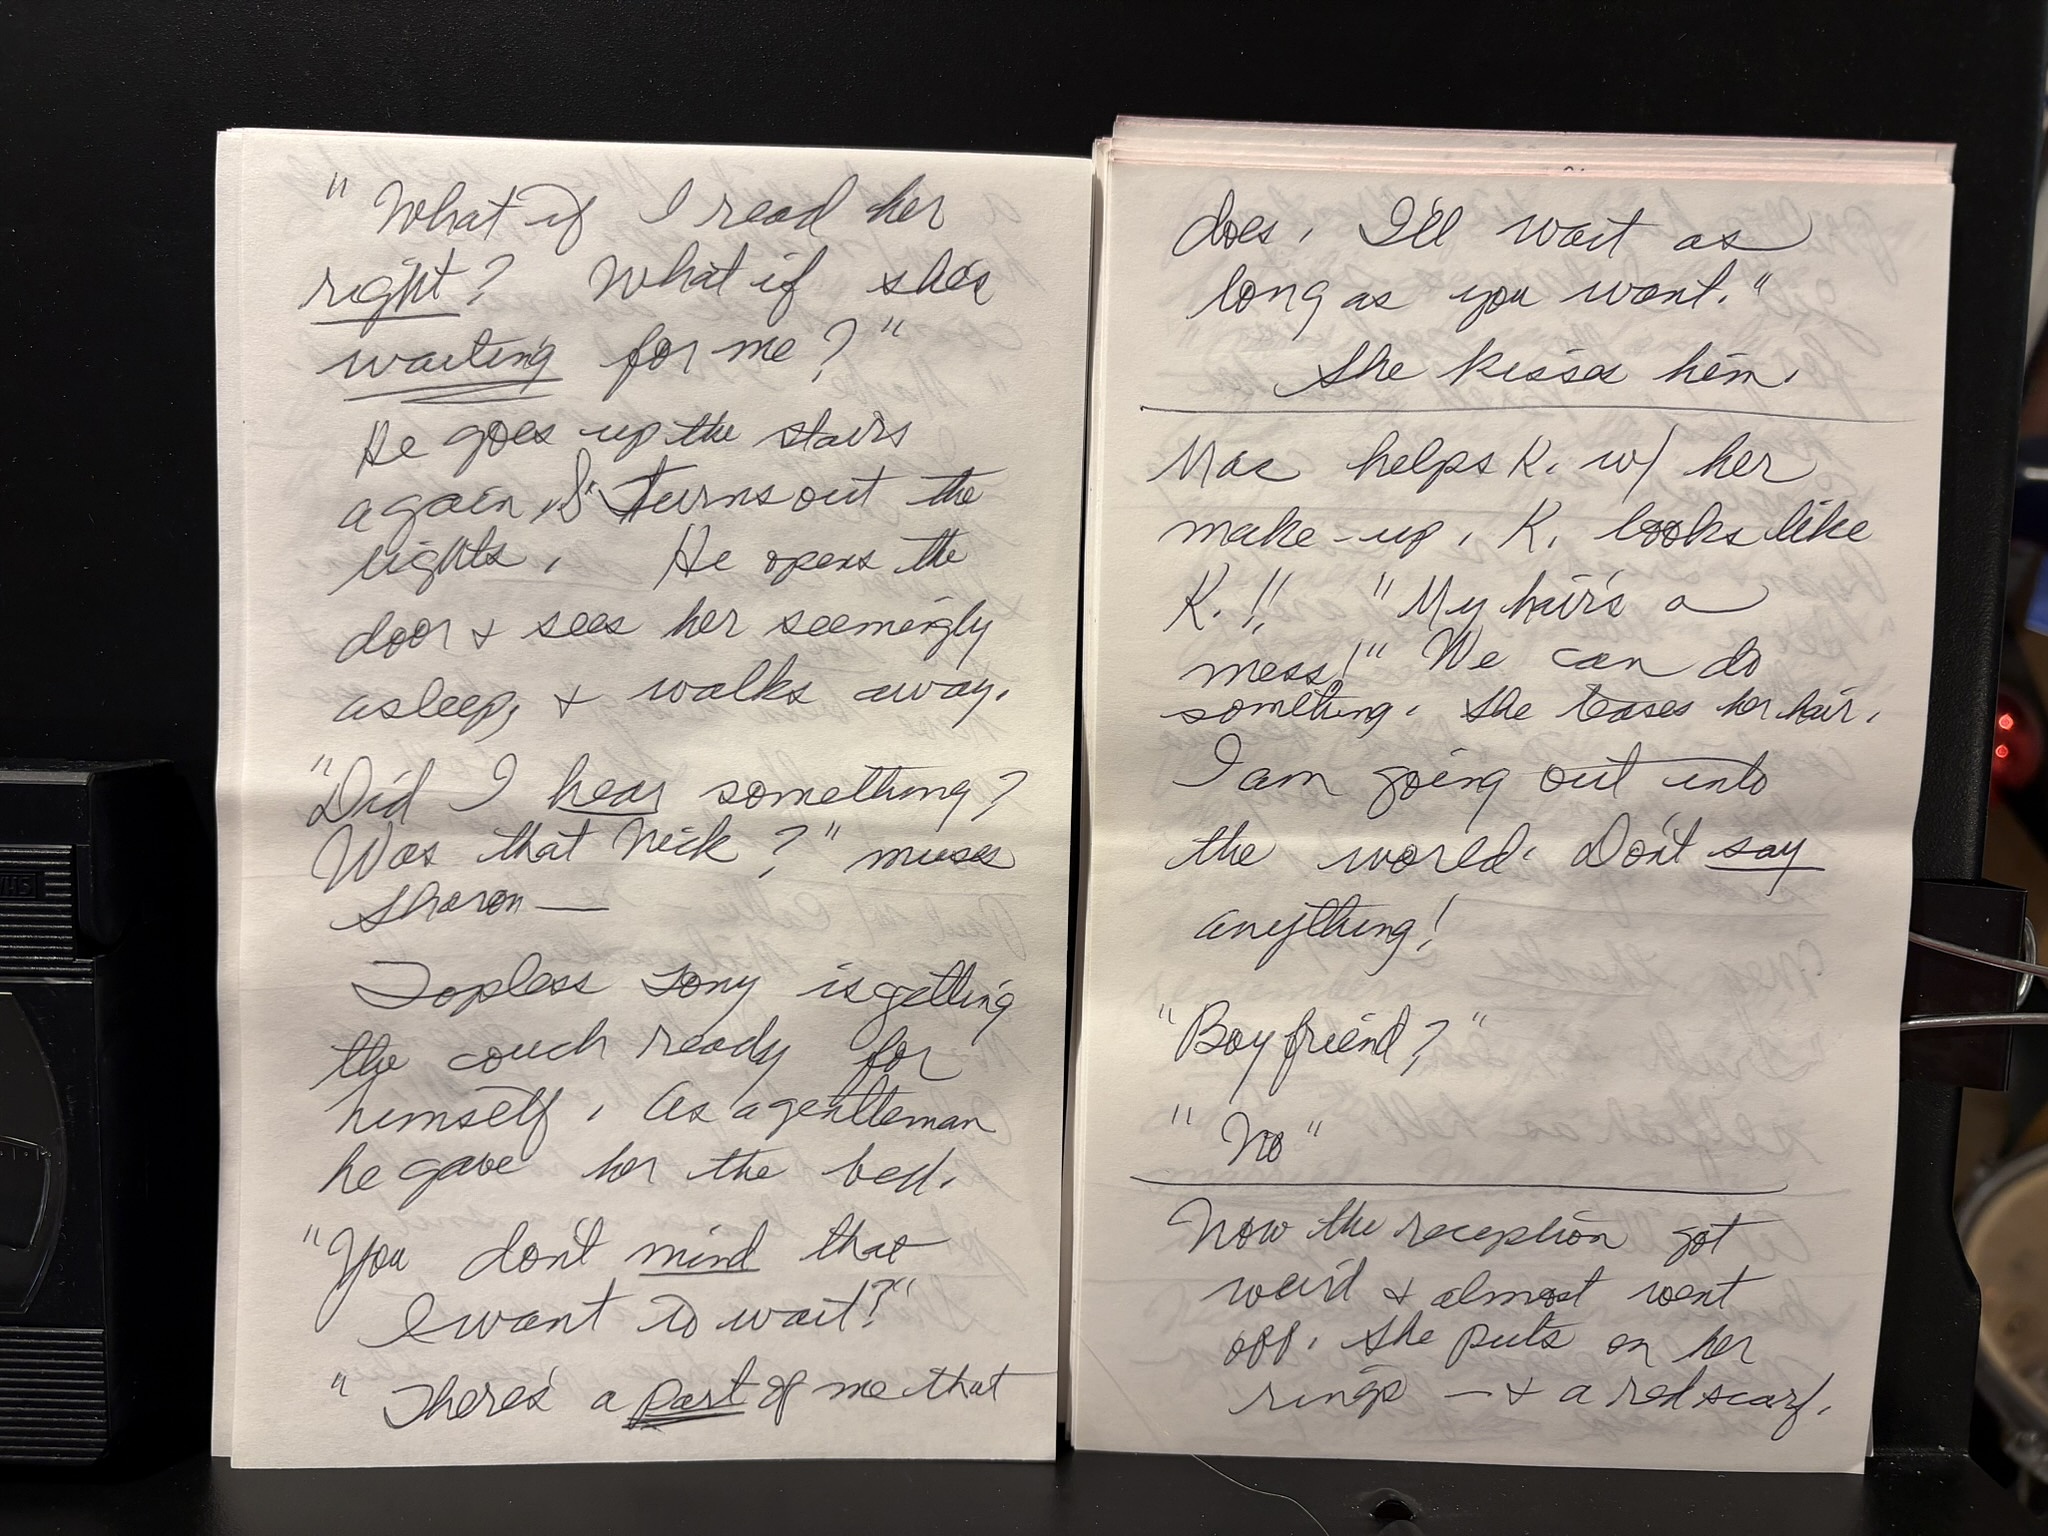 " What if I read her
right? What if she's
waiting for me?"
He goes up the stairs
again, & turns out the
lights. He opens the
door & sees her seemingly
asleep, & walks away.
"Did I hear something?
Was that Nick?" muses
Sharon —
Topless Tony is getting
the couch ready for
himself. As a gentleman
he gave her the bed.
"You don't mind that
I want to wait?"
" There's a part of me that
does. I'll wait as
long as you want."
She kisses him.
Mac helps K. w/ her
make-up. K. looks like
K.!! "My hair's a
mess!" We can do
something. She teases her hair.
I am going out into
the world. Don't say
anything!
"Boyfriend?"
"No"
Now the reception got
weird & almost went
off. She puts on her
rings — & a red scarf.
VHS